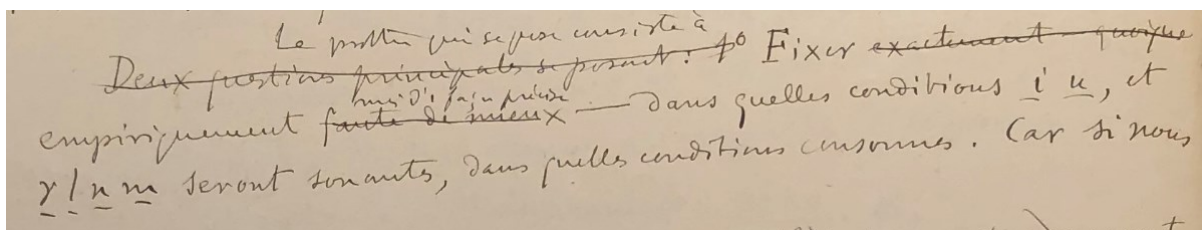 Le problème qui se pose consiste à
Deux questions principales se posent : 1° Fixer exactement – quoique
mais d'1 façon précise
empiriquement faute de mieux — dans quelles conditions i u, et
r l n m seront sonantes, dans quelles conditions consonnes. Car si nous